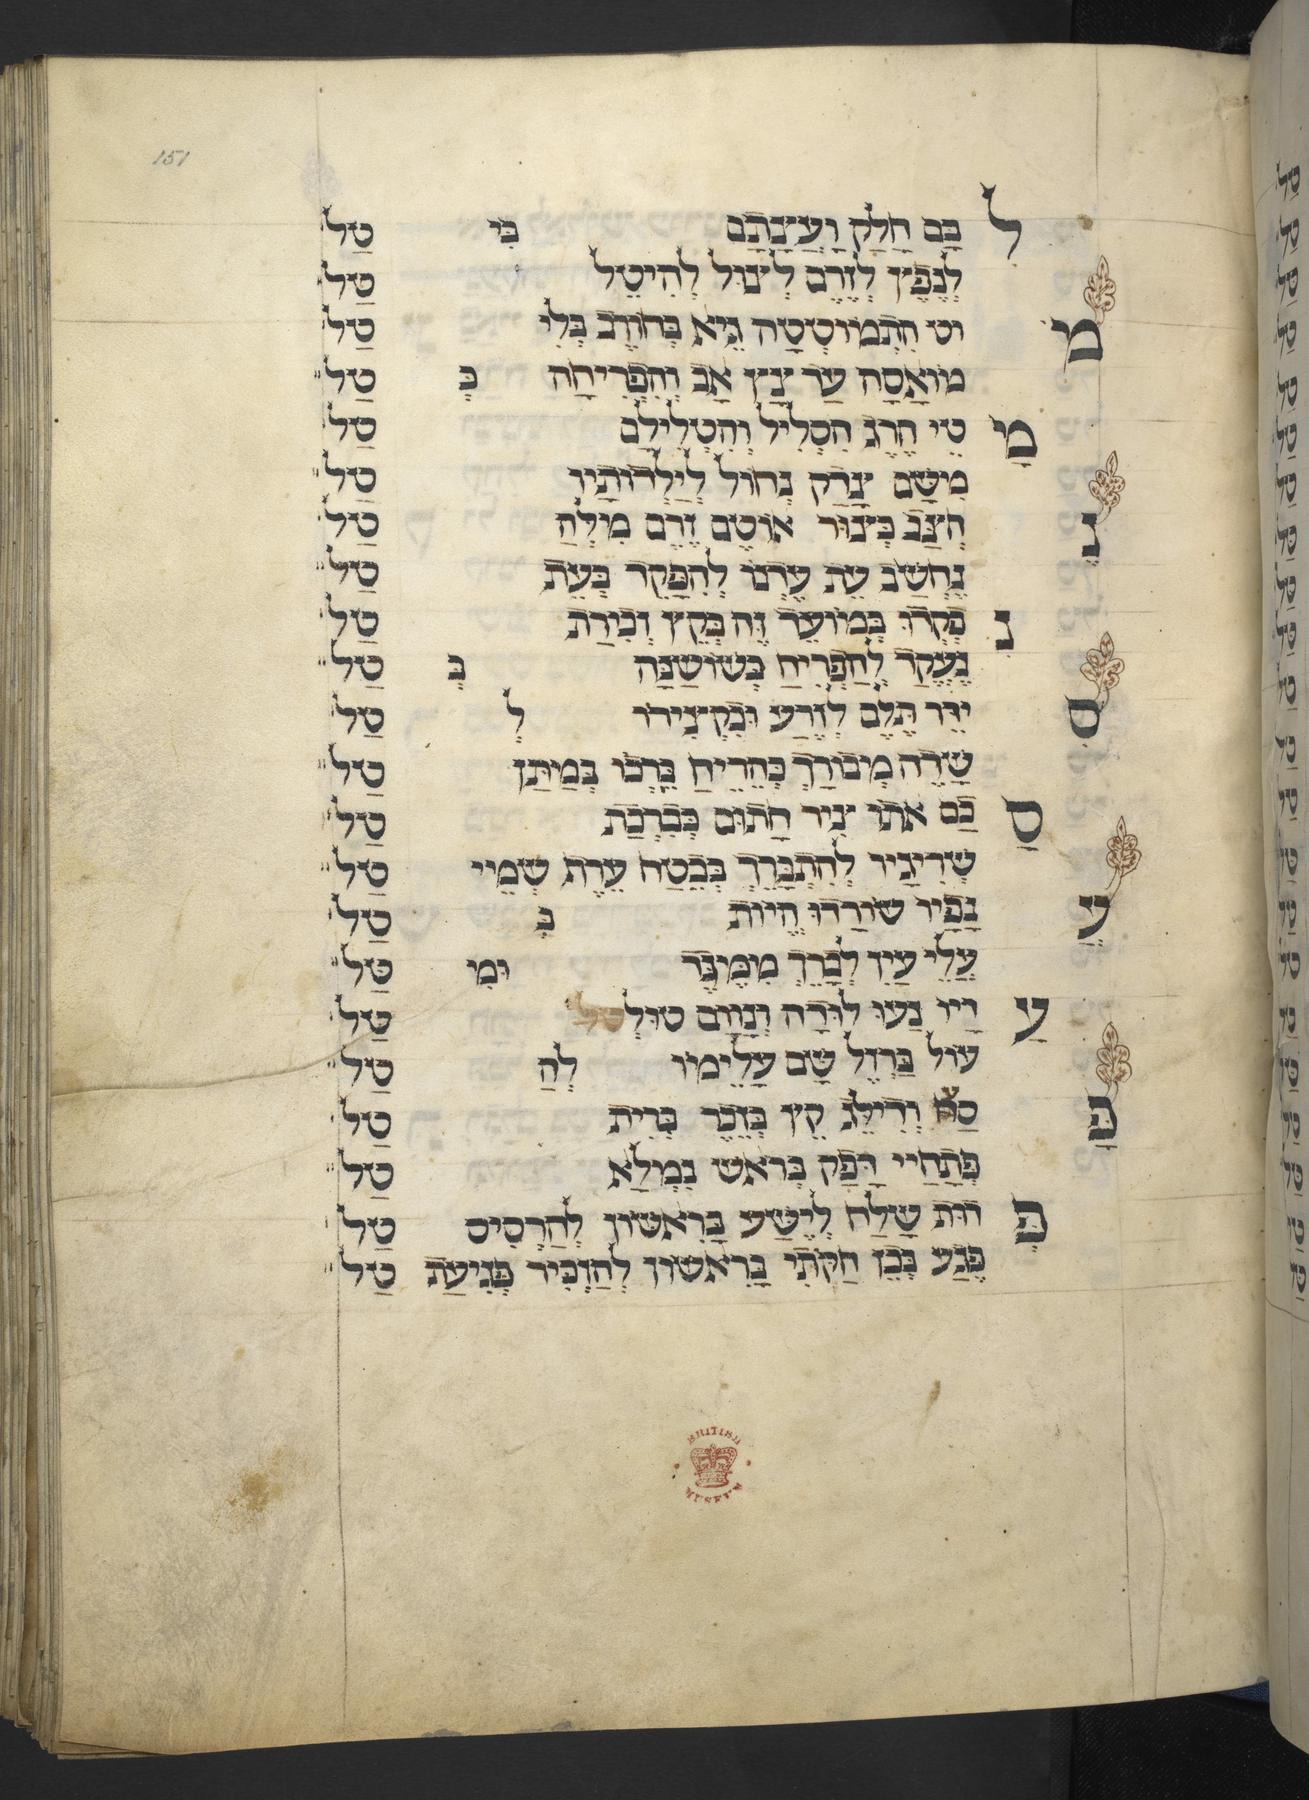 151
לִ בָּם חָלַק וְעִצָּתָם כִּי טַל
לְנֶפֶץ לְזֶרֶם לְצוּל לְהִיטֵל טַל
מ וט הִתְמוֹטְטָה גֵיא בְּחוֹרֶב בְּלִי טַל
מוֹאָסָה עַד צָץ אָב וְהִפְרִיחָהּ כְּ טַל
מָ טֵי הֶרֶג הִסְלִיל וְהִטְלִילָם טַל
מִשָּׁם צָדַק נְחוֹל לְיַלְדוּתָיו טַל
נֶ חְצַב כְּצוּר אוֹטֶם זֶרֶם מִלְּהַ טַל
נֶחְשַׁב עֵת עֶדְנוֹ לְהִפָּקֵד כְּעֵת טַל
נִ פְקְדוּ בְּמוֹעֵד זֶה בְּקֵץ זְכִירַת טַל
נֶעֱקַד לְהַפְרִיחַ כְּשׁוֹשַׁנָּה בְּ טַל
סִ ידֵּר תֶּלֶם לְזֶרַע וּבִקְצִירוֹ לְ טַל
שָׂדֶה מְבוֹרָךְ כְּהֵרִיחַ בֵּרְכוֹ בְּמַתַּן טַל
סַ כַּם אֹתוֹ צִיר חָתוּם כְּבִרְכַּת טַל
שְׂרִידָיו לְהִתְבָּרֵךְ בְּבֶטַח עֶדֶת שְׁמֵי טַל
עֲ נָפָיו שׁוֹדְדוּ הֱיוֹת בְּ טַל
עֲלֵי עַיִן לְבָרֵךְ מִמֶּגֶד וּמִ טַל
עַ דָיו נַעוּ לוּדָה וְנָווּם טוּלְטַל טַל
עוֹל בַּרְזֶל שָׂם עָלֵימוֹ לְהַ טַל
פָּ סַח וְדִילֵּג קֵץ בְּזֵכֶר בְּרִית טַל
פְּתָחַיי דָּפַק בְּרֹאשׁ נִמְלָא טַל
פְּ דוּת שָׁלַח לְיֶשַׁע בָּרִאשׁוֹן לְהַרְסִיס טַל
פֶּגַע בְּבֵן חַקֹּתִי בָּרִאשׁוֹן לְהַזְכִּיר פְּגִיעַת טַל
BRITISH
MUSEUM